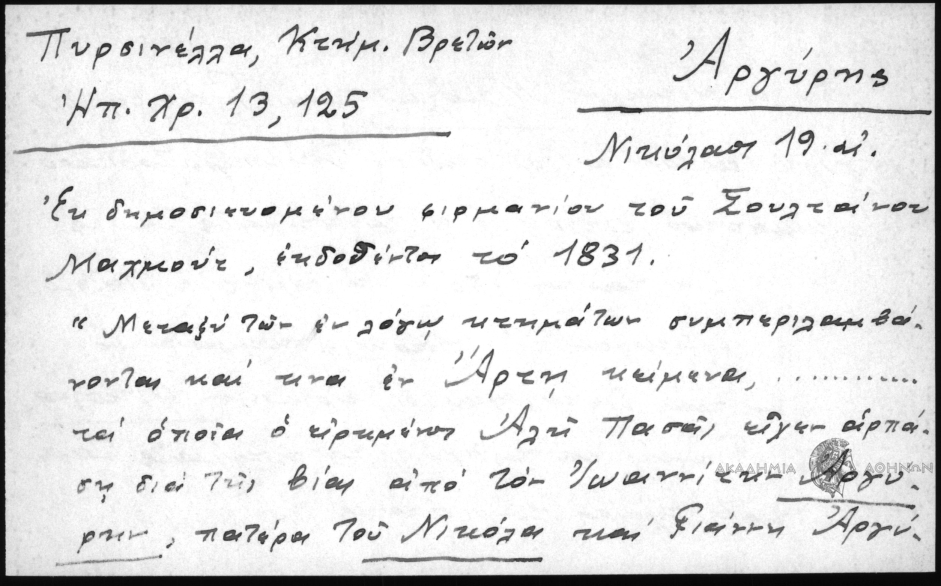 Πυρσινέλλα, Κτήμ. Βρετῶν
Ἀργύρης
Ἠπ. Χρ. 13, 125
Νικόλαος 19. αἰ.
Ἐκ δημοσιευομένου φιρμανίου τοῦ Σουλτάνου
Μαχμούτ, ἐκδοθέντος τό 1831.
"Μεταξύ τῶν ἐν λόγῳ κτημάτων συμπεριλαμβά-
νονται καί τινα ἐν Ἄρτῃ κείμενα, ............
τά ὁποῖα ὁ εἰρημένος Ἀλῆ Πασᾶς εἶχεν ἁρπά-
ση διά τῆς βίας ἀπό τόν Ἰωαννίτην Ἀργύ-
ρην, πατέρα τοῦ Νικόλα καί Γιάννη Ἀργύ-
ΑΚΑΔΗΜΙΑ ΑΘΗΝΩΝ